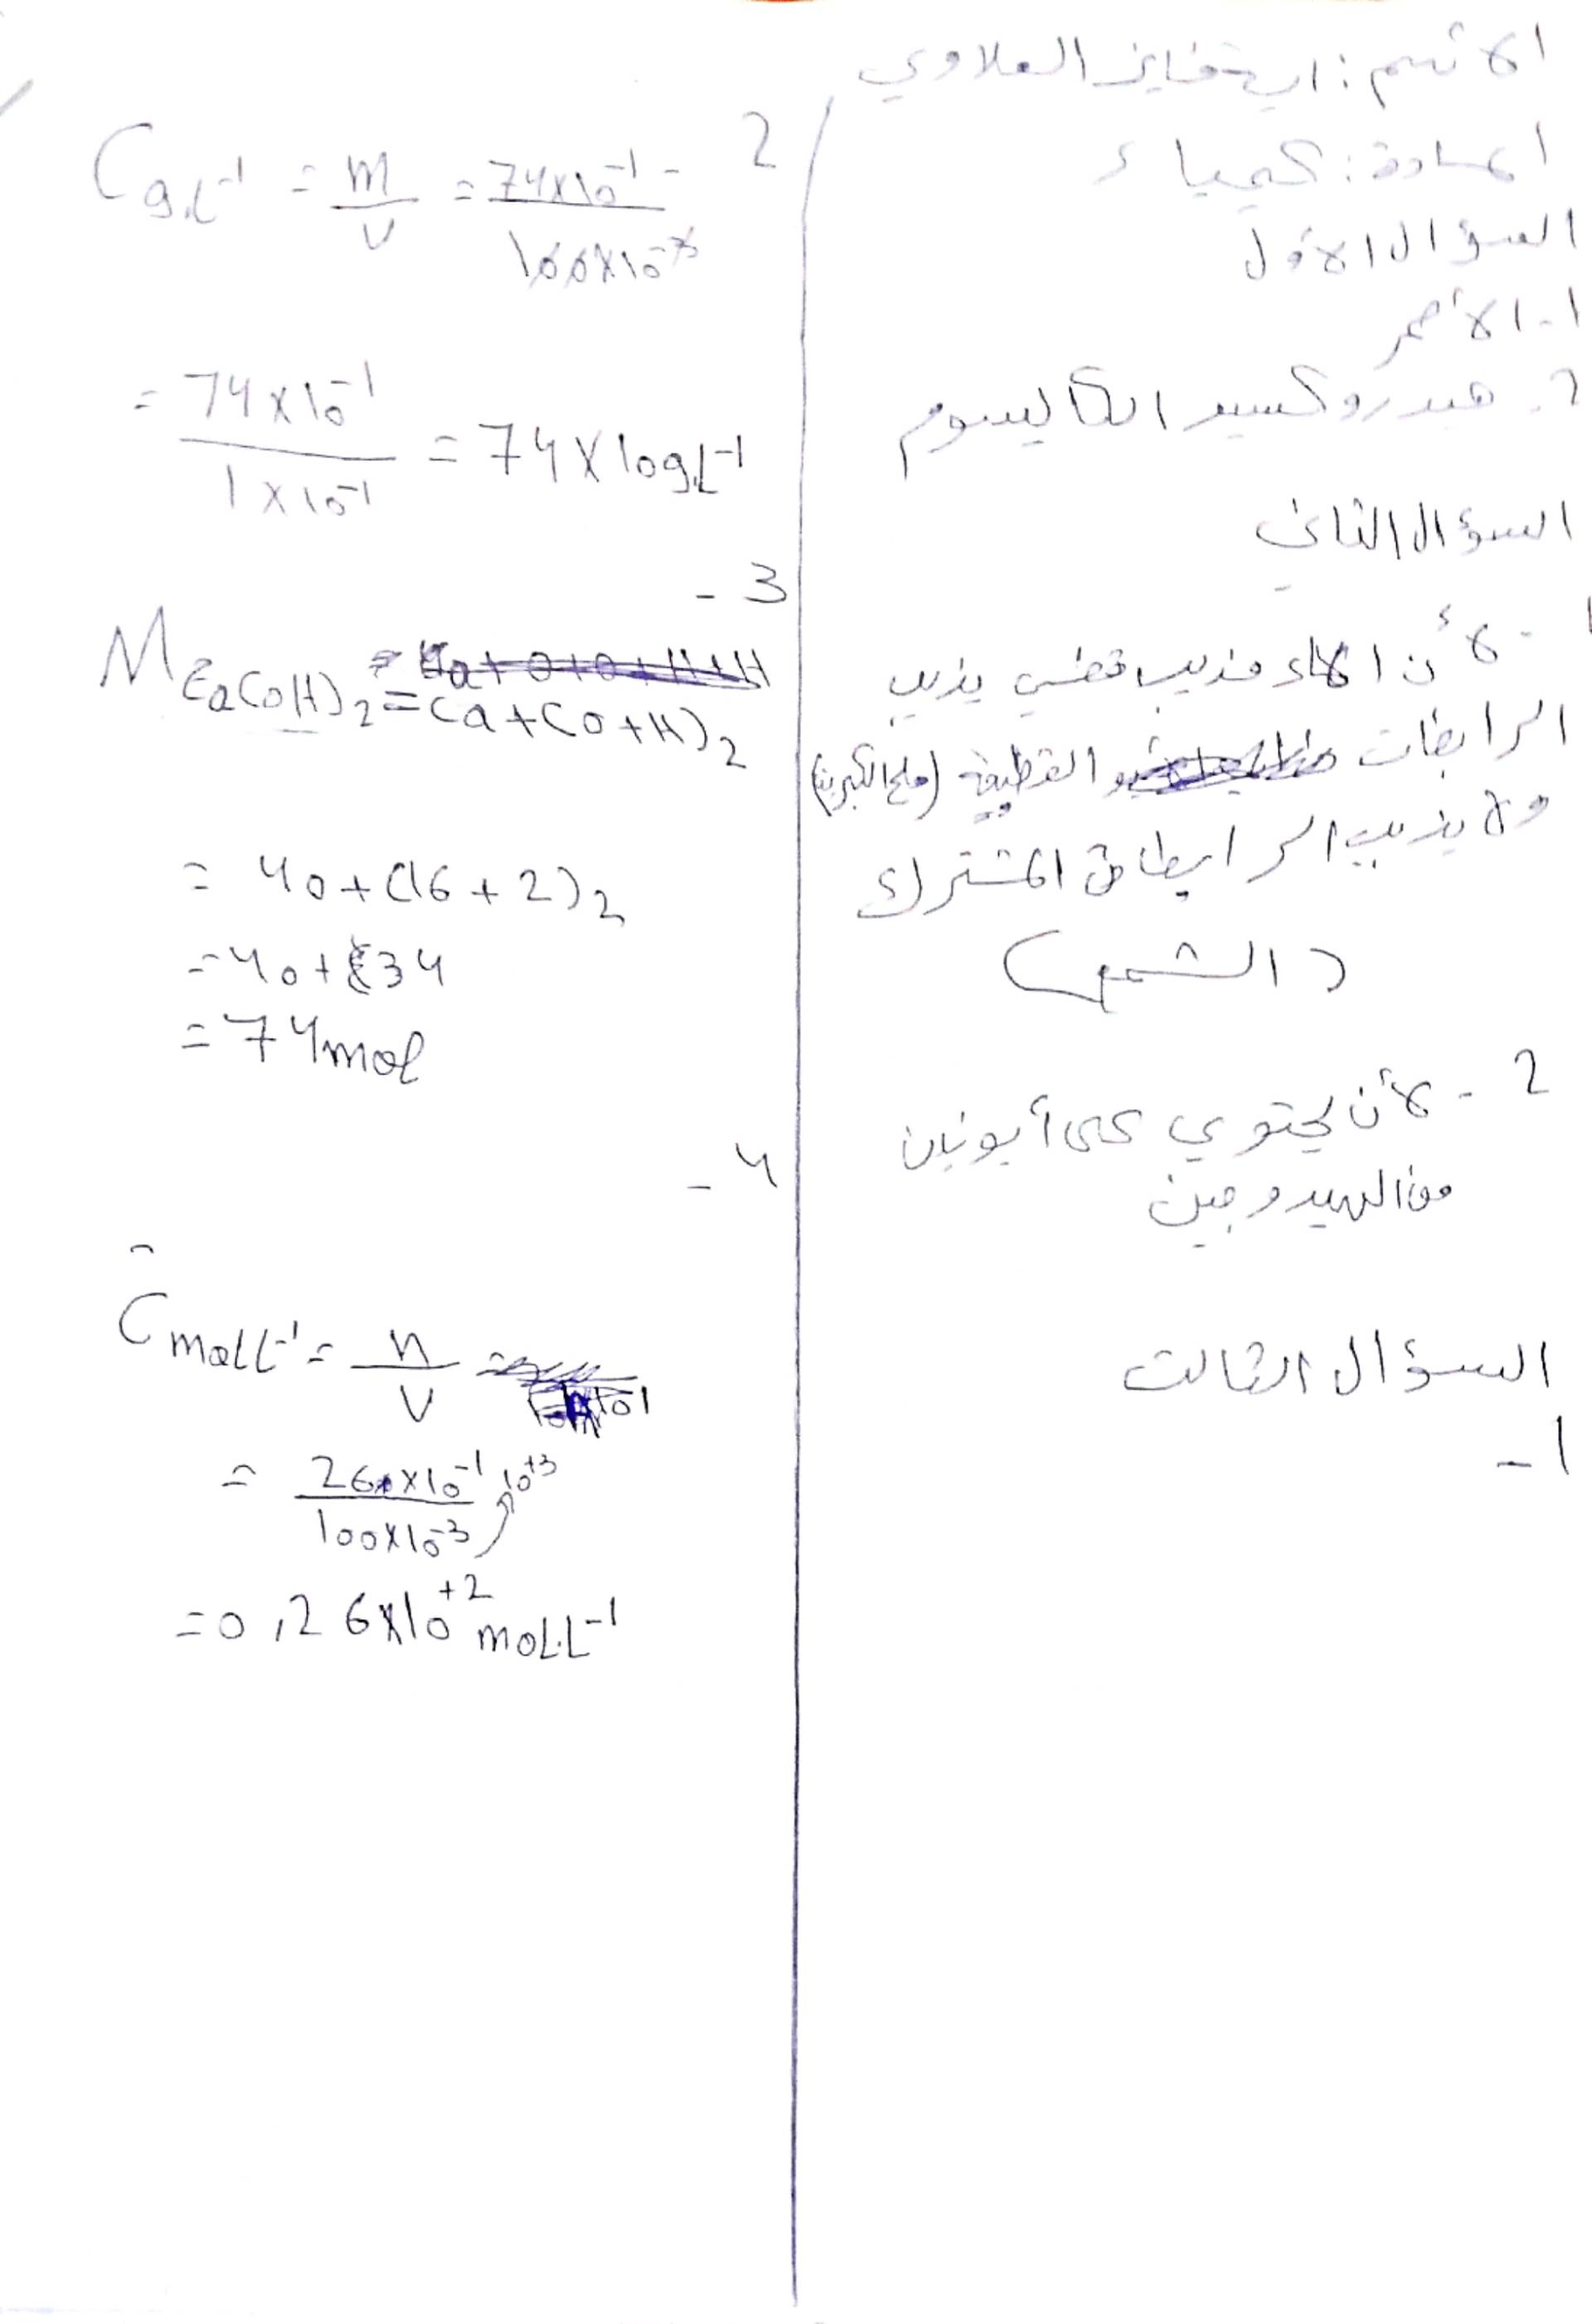 الاسم: اية فايز العلاوي
المادة: كيمياء
السؤال الأول
1- الأحمر
2- هيدروكسيد الكالسيوم
السؤال الثاني
1- لأن الماء مذيب قطبي يذيب
الرابطات القطبية (ملح الكبريتا)
ولا يذيب الرابطات المشترك
(الشمع)
2- لأن يحتوي على أيونان
من الهيدروجين
السؤال الثالث
1-
2 -
C g.L⁻¹ = m/v = 74x10⁻¹/100x10⁻³
= 74x10⁻¹/1x10⁻¹ = 74x10g.L⁻¹
3 -
M Ca(OH)₂ = Ca+(O+H)₂
= 40+(16+2)₂
=40+34
=74mol
4 -
C mol.L⁻¹ = n/v
= 26x10⁻¹/100x10⁻³ 10⁺³
=0,26x10⁺² mol.L⁻¹